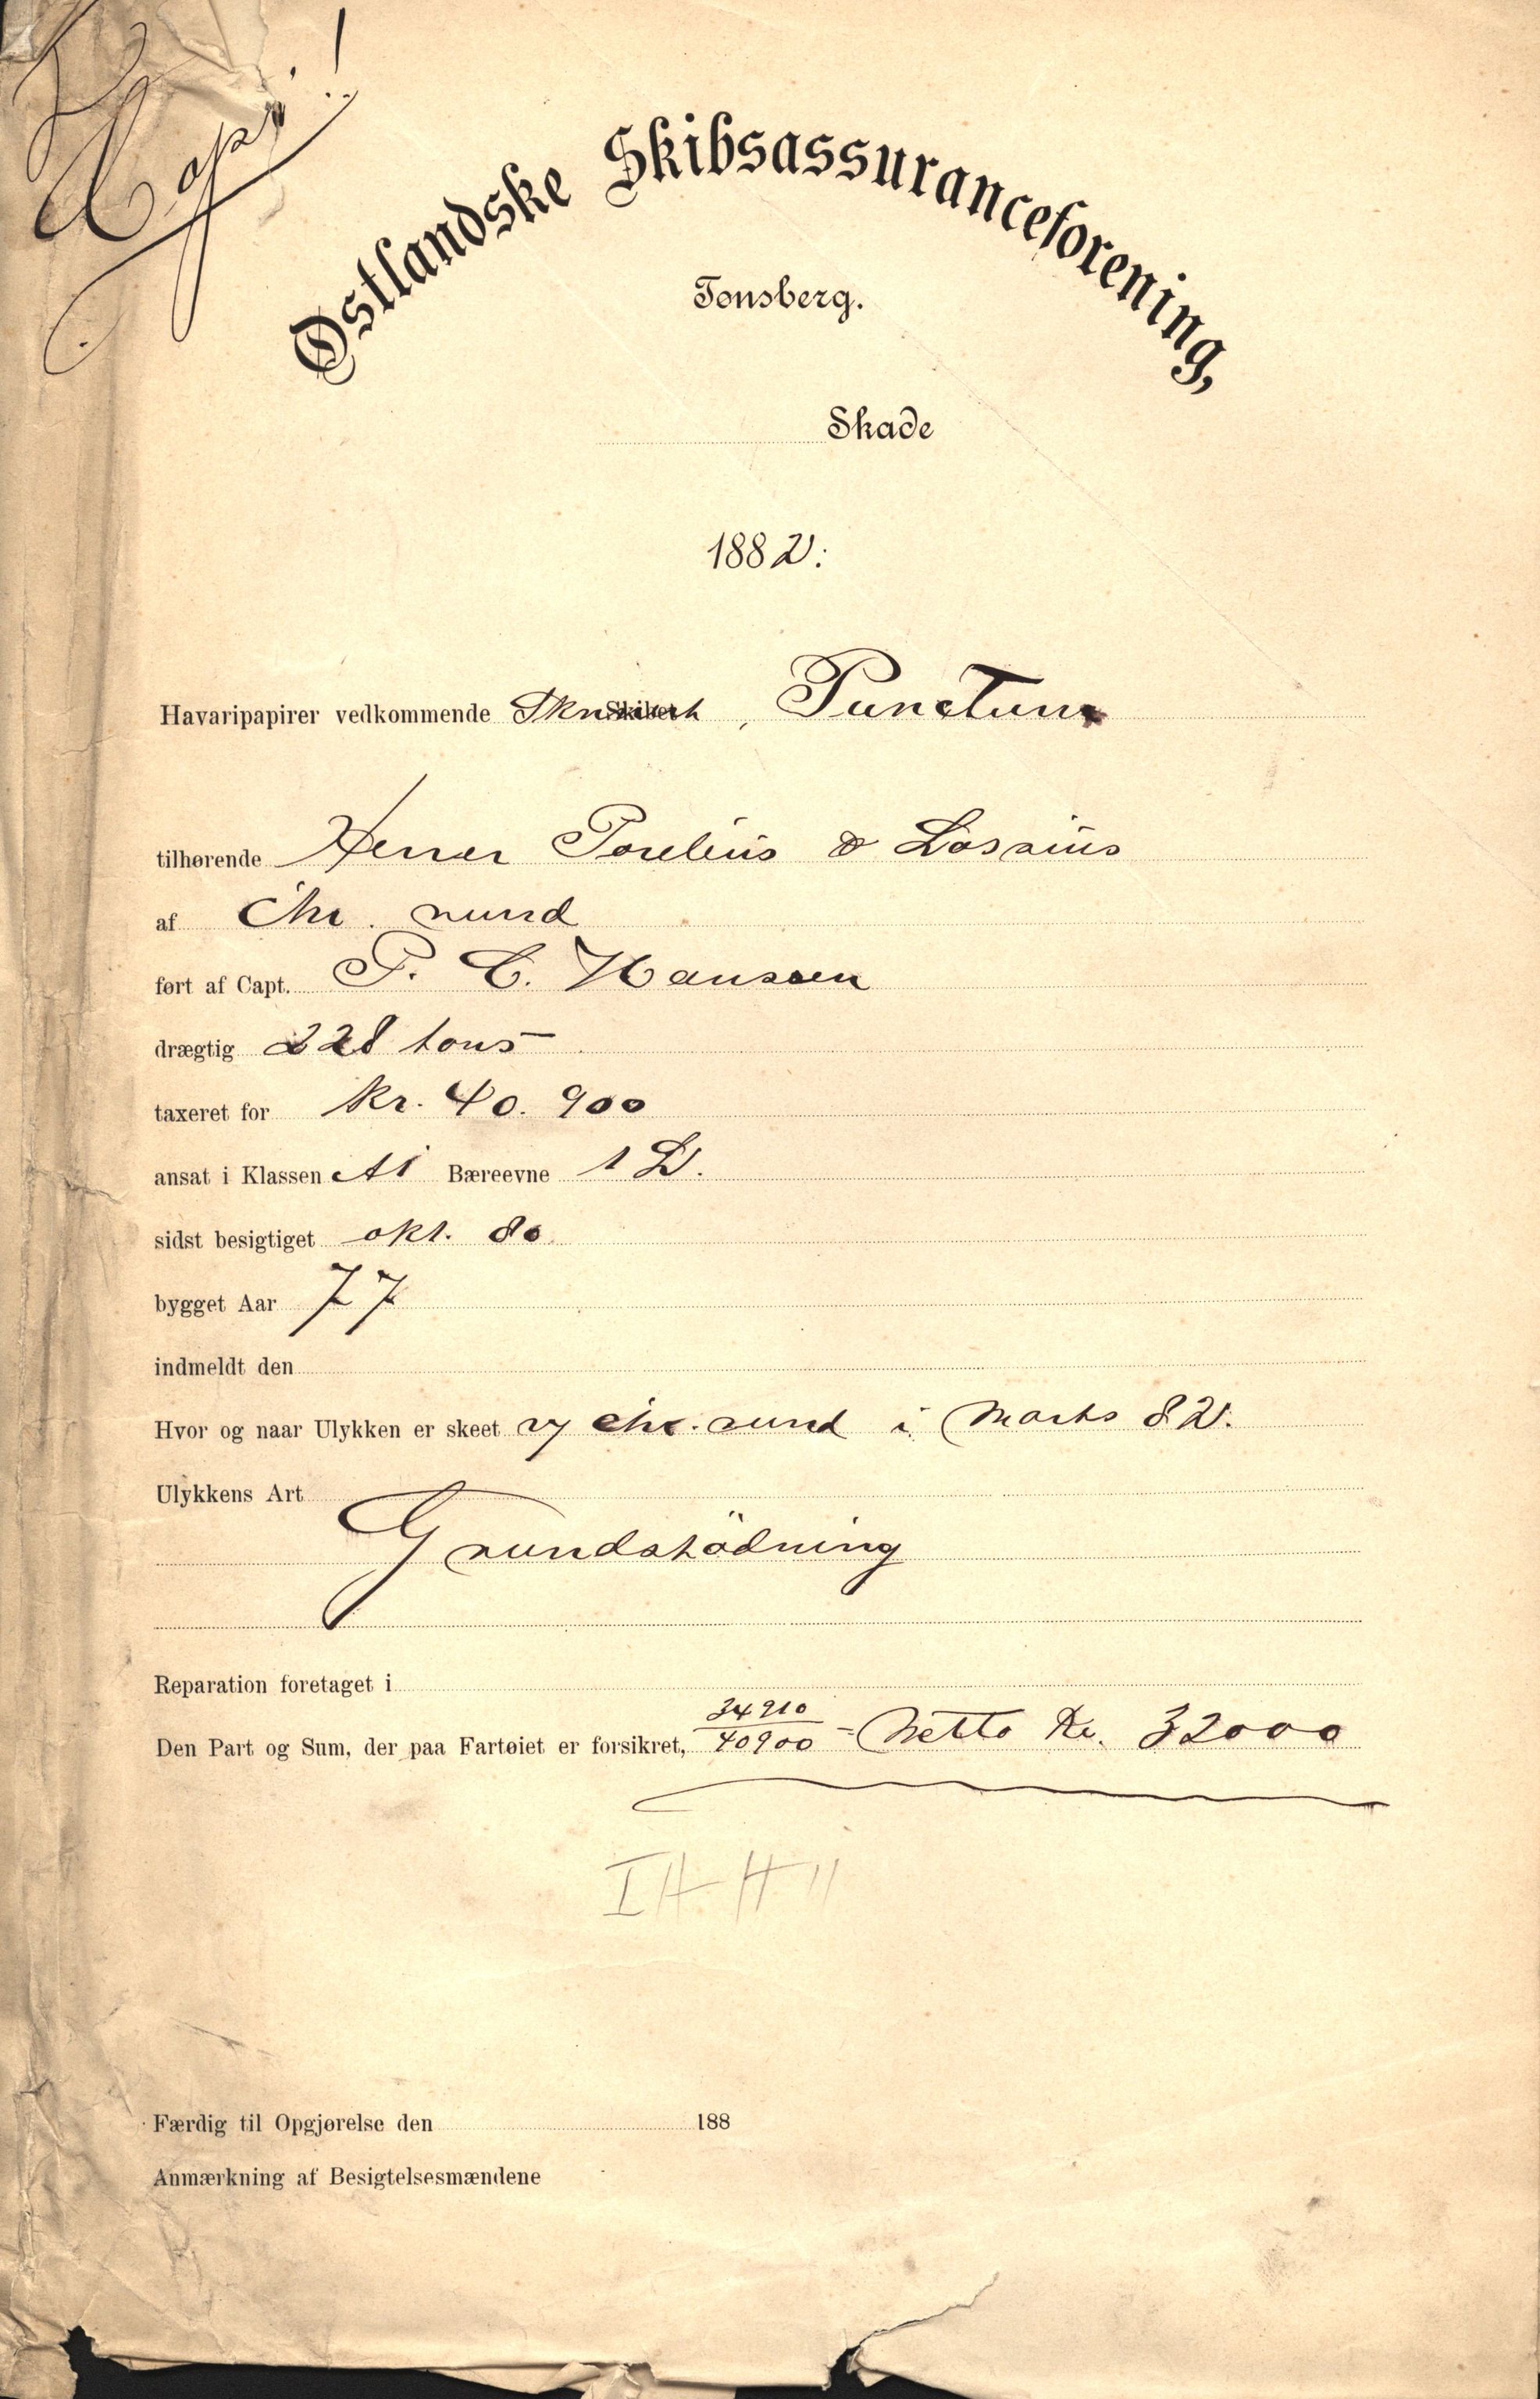 Copi!
Østlandske Skibsassuranceforening,
Tønsberg.
Skade
1882:
Havaripapirer vedkommende Skibet, Punctum
tilhørende Herrer Parelius & Lossius
af Chr. sund
ført af Capt. P. C. Hansen
drægtig 228 tons
taxeret for Kr. 40.900
ansat i Klassen A1 Bæreevne 1 D.
sidst besigtiget okt. 80
bygget Aar 77
indmeldt den
Hvor og naar Ulykken er skeet v/ Chr. sund i Marts 82.
Ulykkens Art
Grundstödning
Reparation foretaget i
Den Part og Sum, der paa Fartøiet er forsikret, 34910/40900 = Netto Kr. 32000
Færdig til Opgjørelse den 188
Anmærkning af Besigtelsesmændene